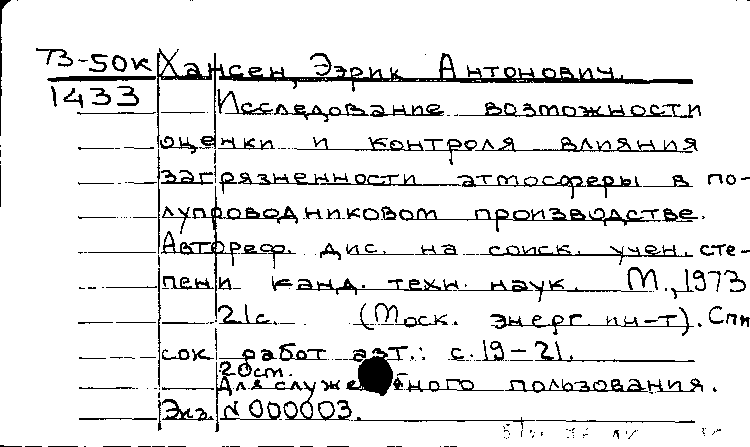 ТЗ-50к Хансен, Ээрик Антонович.
1433 Исследование возможности
оценки и контроля влияния
загрязненности атмосферы в по-
лупроводниковом производстве.
Автореф. дис. на соиск. учен. сте-
пени канд. техн. наук. М., 1973
21с. (Моск. энерг. ин-т). Спи
сок работ авт.: с. 19-21.
20см.
Для служебного пользования.
Экз. N 000003.